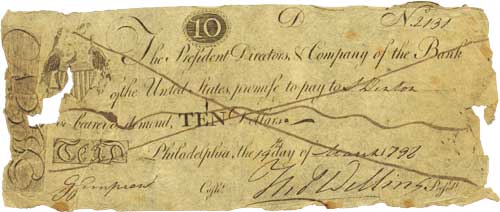 10 D No. 2131
The President Directors, & Company of the Bank
of the United States, promise to pay to
or bearer on demand, TEN Dollars
TEN Philadelphia, the 19th day of March 1796
Cashr. Th Willing Presidt.